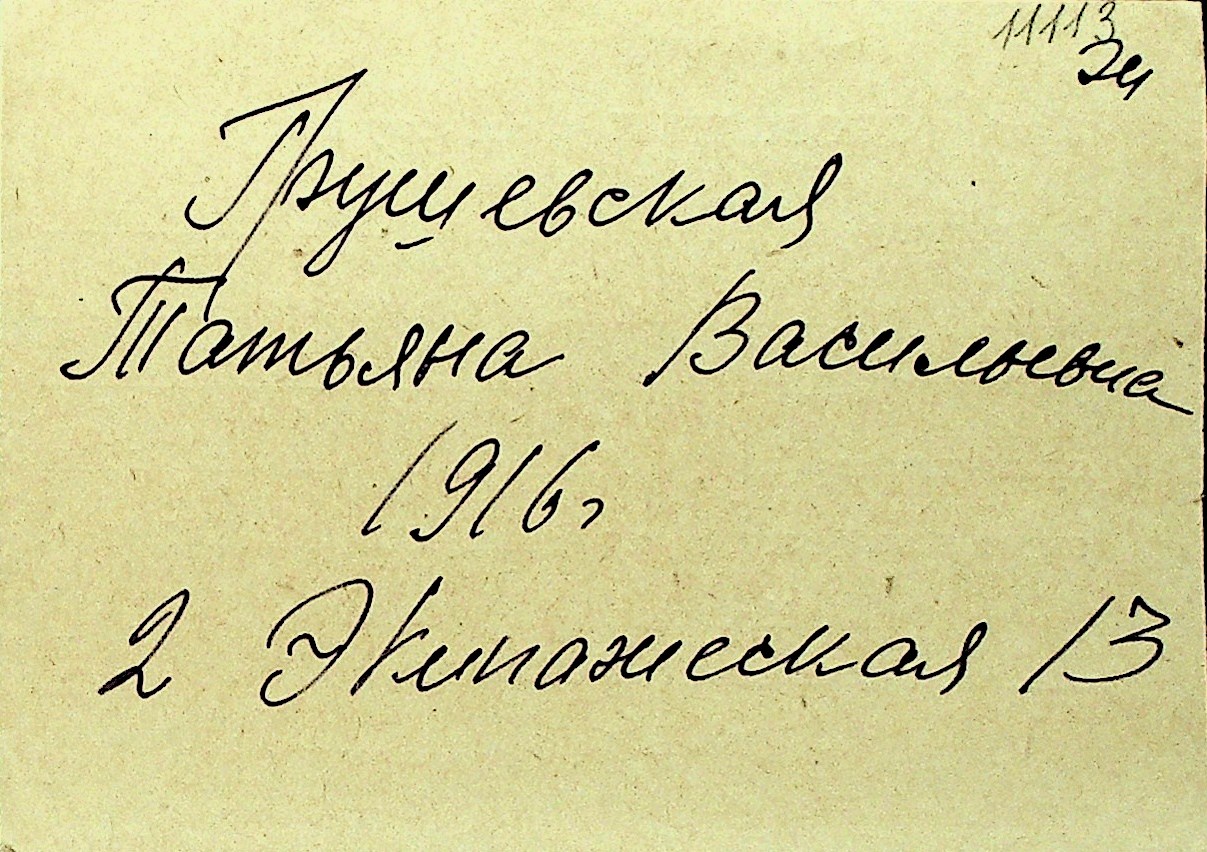 11113
Эи
Грушевская
Татьяна Васильевна
1916г
2 Экипажеская 13